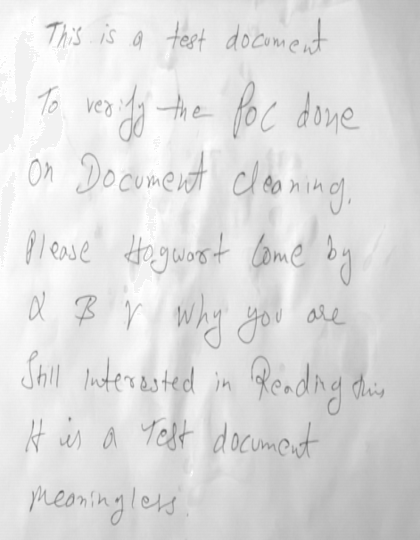 This is a test document
To verify the Poc done
On Document cleaning.
Please Hogwart Come by
α B γ Why you are
Still Interested in Reading this
It is a Test document
meaningless.